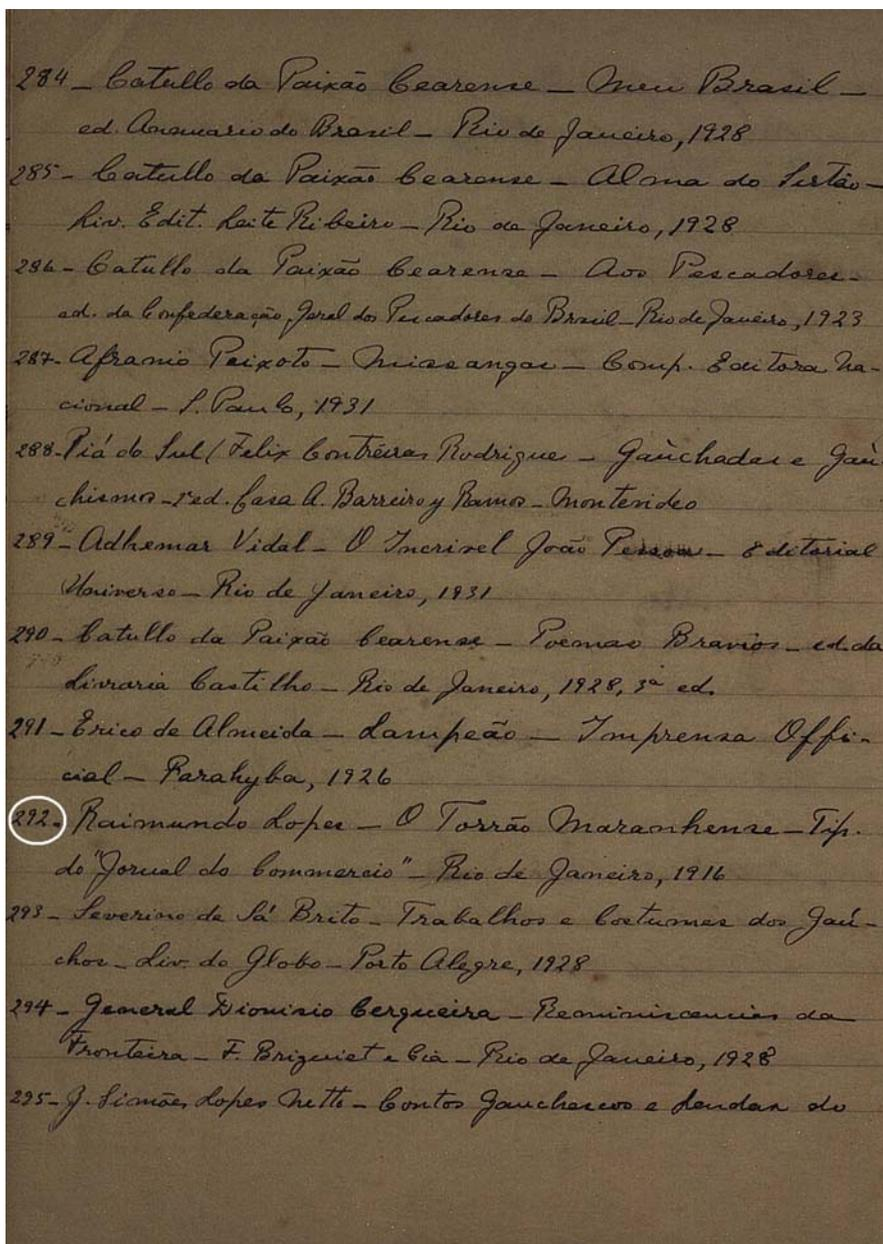 284 - Catullo da Paixão Cearense - Meu Brasil -
ed. Annuario do Brasil - Rio de Janeiro, 1928
285 - Catullo da Paixão Cearense - Alma do Sertão -
Liv. Edit. Leite Ribeiro - Rio de Janeiro, 1928
286 - Catullo da Paixão Cearense - Aos Pescadores -
ed. da Confederação Geral dos Pescadores do Brasil - Rio de Janeiro, 1923
287 - Afranio Peixoto - Missangas - Comp. Editora Na-
cional - S. Paulo, 1931
288 - Piá do Sul (Felix Contreiras Rodrigue - Gaúchadas e Gaú
chismos - ed. Casa A. Barreiro y Ramos - Montevideo
289 - Adhemar Vidal - O Incrivel João Pessoa - Editorial
Universo - Rio de Janeiro, 1931
290 - Catullo da Paixão Cearense - Poemas Bravios - ed. da
Livraria Castilho - Rio de Janeiro, 1928, 3ª ed.
291 - Erico de Almeida - Lampeão - Imprensa Offi-
cial - Parahyba, 1926
292 - Raimundo Lopes - O Torrão Maranhense - Tip.
do "Jornal do Commercio" - Rio de Janeiro, 1916
293 - Severino de Sá Brito - Trabalhos e Costumes dos Gaú-
chos - Liv. do Globo - Porto Alegre, 1928
294 - General Dionisio Cerqueira - Reminiscencias da
Fronteira - F. Briguiet e Cia - Rio de Janeiro, 1928
295 - J. Simões Lopes Netto - Contos Gauchescos e Lendas do